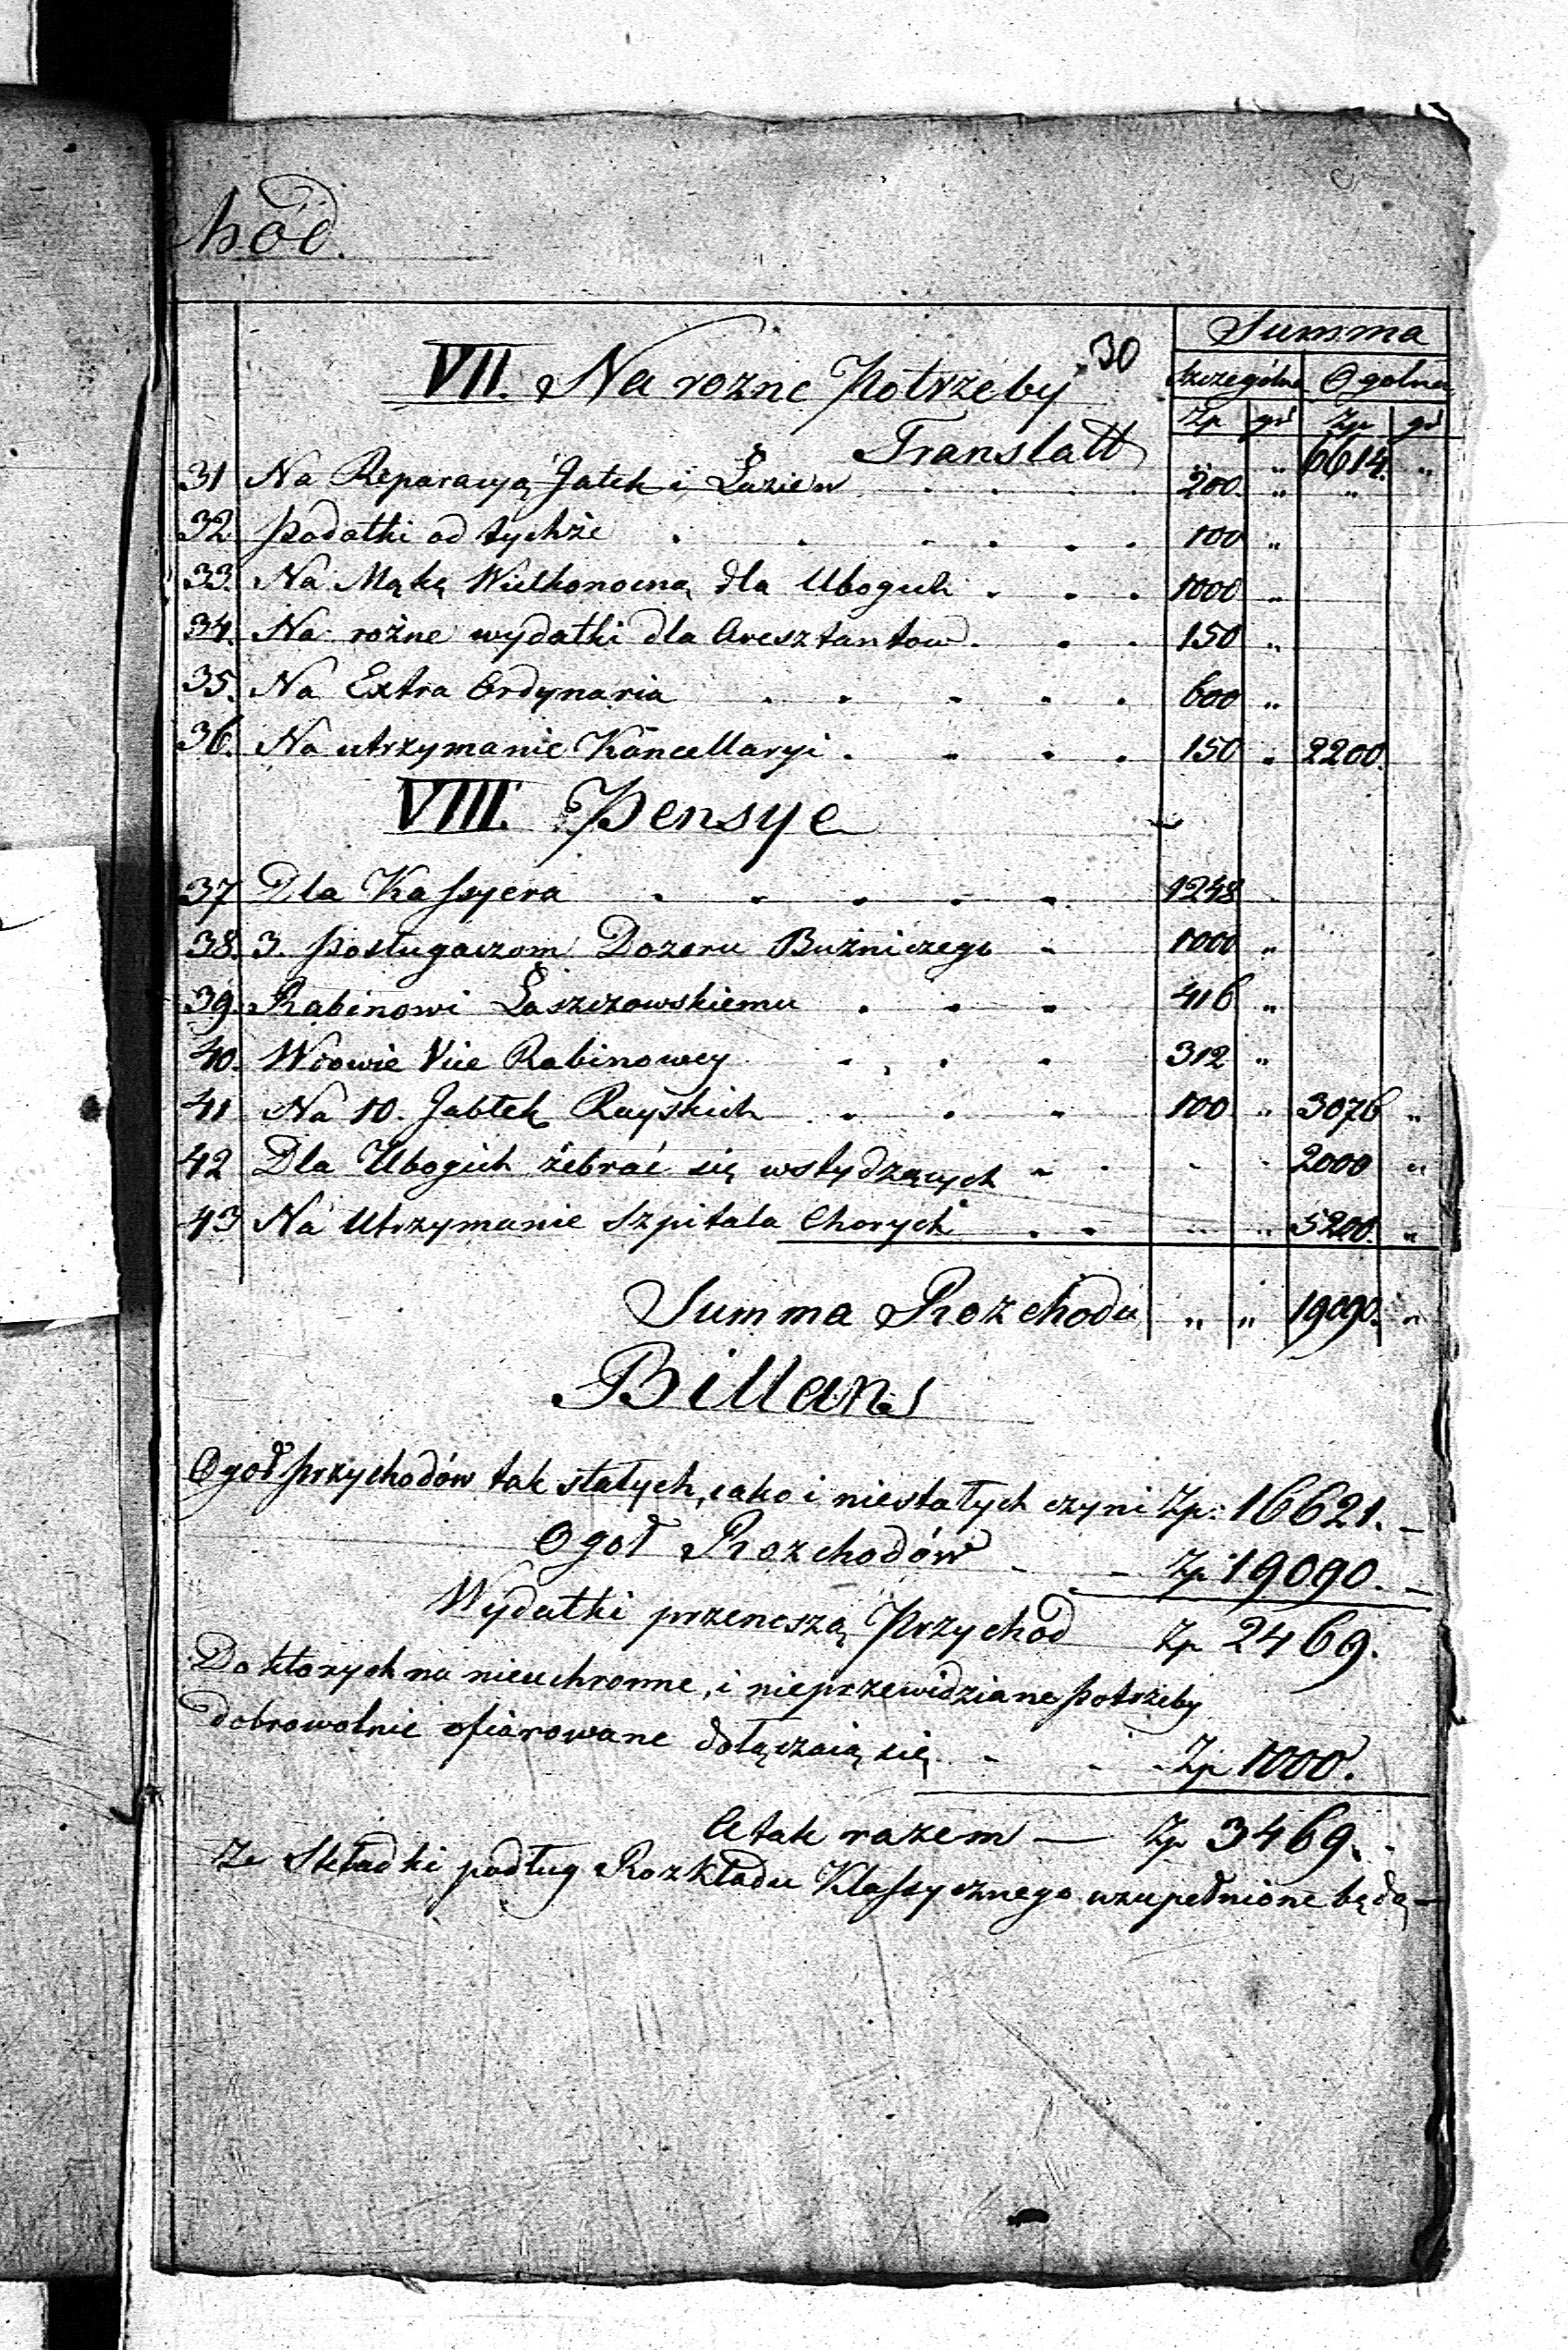 hód.
30
Summa
VII. Na rozne Potrzeby
Szczególna Ogolna
Zp gr Zp gr
Translatt " " 6614. "
31 Na Reparacyą Jatek i Łaziew 200. " "
32 Podatki od tychże 100 "
33. Na Mąkę Wielkonocną dla Ubogich 1000 "
34. Na rożne wydatki dla Aresztantow 150 "
35. Na Extra Ordynaria 600 "
36. Na utrzymanie Kancellaryi 150 " 2200.
VIII. Pensye
37 Dla Kassyera 1248
38. 3. Posługaczom Dozoru Bużniczego 1000 "
39. Rabinowi Łaszczowskiemu 416 "
40. Wdowie Vice Rabinowey 312 "
41 Na 10. Jabłek Rayskich 100 " 3076 "
42 Dla Ubogich żebrać się wstydzących 2000 "
43 Na Utrzymanie Szpitala Chorych 5200. "
Summa Rozchodu " " 19090. "
Billans
Ogoł przychodów tak stałych, iako i niestałych czyni Zp: 16621. –
Ogoł Rozchodów - - Zp 19090. –
Wydatki przenoszą Przychod Zp 2469.
Do ktorych na nieuchronne, i nieprzewidziane potrzeby
dobrowolnie ofiarowane dołączaią się - - Zp 1000.
A tak razem — Zp 3469.
Ze Składki podług Rozkładu Klassycznego uzupełnione będą –